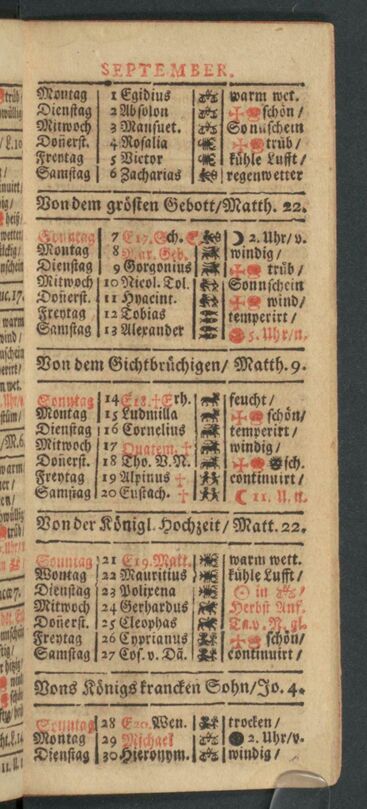 SEPTEMBER.
Montag 1 Egidius warm wet.
Dienstag 2 Absolon schön /
Mitwoch 3 Mansuet. Sonnschein
Donerst. 4 Rosalia trüb /
Freytag 5 Victor kühle Lufft /
Samstag 6 Zacharias regenwetter
Von dem grösten Gebott / Matth. 22.
Sonntag 7 E17. Sch. 2. Uhr / v.
Montag 8 Mar. Geb. windig /
Dienstag 9 Gorgonius trüb /
Mitwoch 10 Nicol. Tol. Sonnschein
Donerst. 11 Hyacint. wind /
Freytag 12 Tobias temperirt /
Samstag 13 Alexander 5. Uhr / n.
Von dem Gichtbrüchigen / Matth. 9.
Sonntag 14 E18. ✝ Erh. feucht /
Montag 15 Ludmilla schön /
Dienstag 16 Cornelius temperirt /
Mitwoch 17 Quatem. ✝ windig /
Donerst. 18 Tho. V. N. sch.
Freytag 19 Alpinus ✝ continuirt /
Samstag 20 Eustach. ✝ ☾ 11. U. n.
Von der Königl. Hochzeit / Matt. 22.
Sonntag 21 E19. Matt. warm wett.
Montag 22 Mauritius kühle Lufft /
Dienstag 23 Polixena ☉ in ♎ /
Mitwoch 24 Gerhardus Herbst Anf.
Donerst. 25 Cleophas Ta. v. N. gl.
Freytag 26 Cyprianus schön /
Samstag 27 Cos. v. Da. continuirt /
Vons Königs krancken Sohn / Jo. 4.
Sonntag 28 E20. Wen. trocken /
Montag 29 Michael 2. Uhr / v.
Dienstag 30 Hieronym. windig /